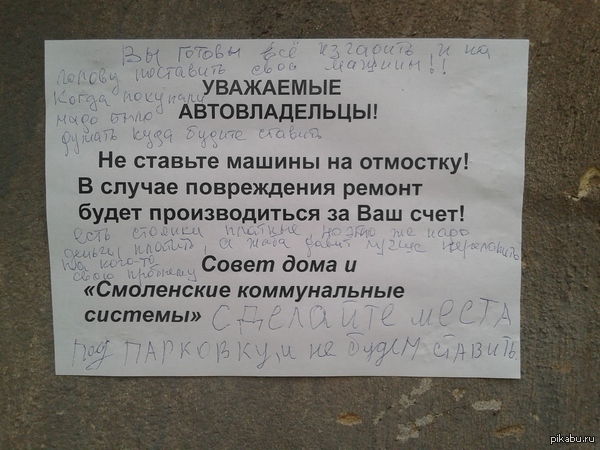 Вы готовы всё изгадить и на
голову поставить свои машины!!
Когда покупали
надо было
думать куда будите ставить
УВАЖАЕМЫЕ
АВТОВЛАДЕЛЬЦЫ!
Не ставьте машины на отмостку!
В случае повреждения ремонт
будет производиться за Ваш счет!
есть стоянки платные, но это же надо
деньги платить, а жаба давит лучше переложить
на кого-то
свою проблему
Совет дома и
«Смоленские коммунальные
системы»
СДЕЛАЙТЕ МЕСТА
ПОД ПАРКОВКУ, И НЕ БУДЕМ СТАВИТЬ.
pikabu.ru